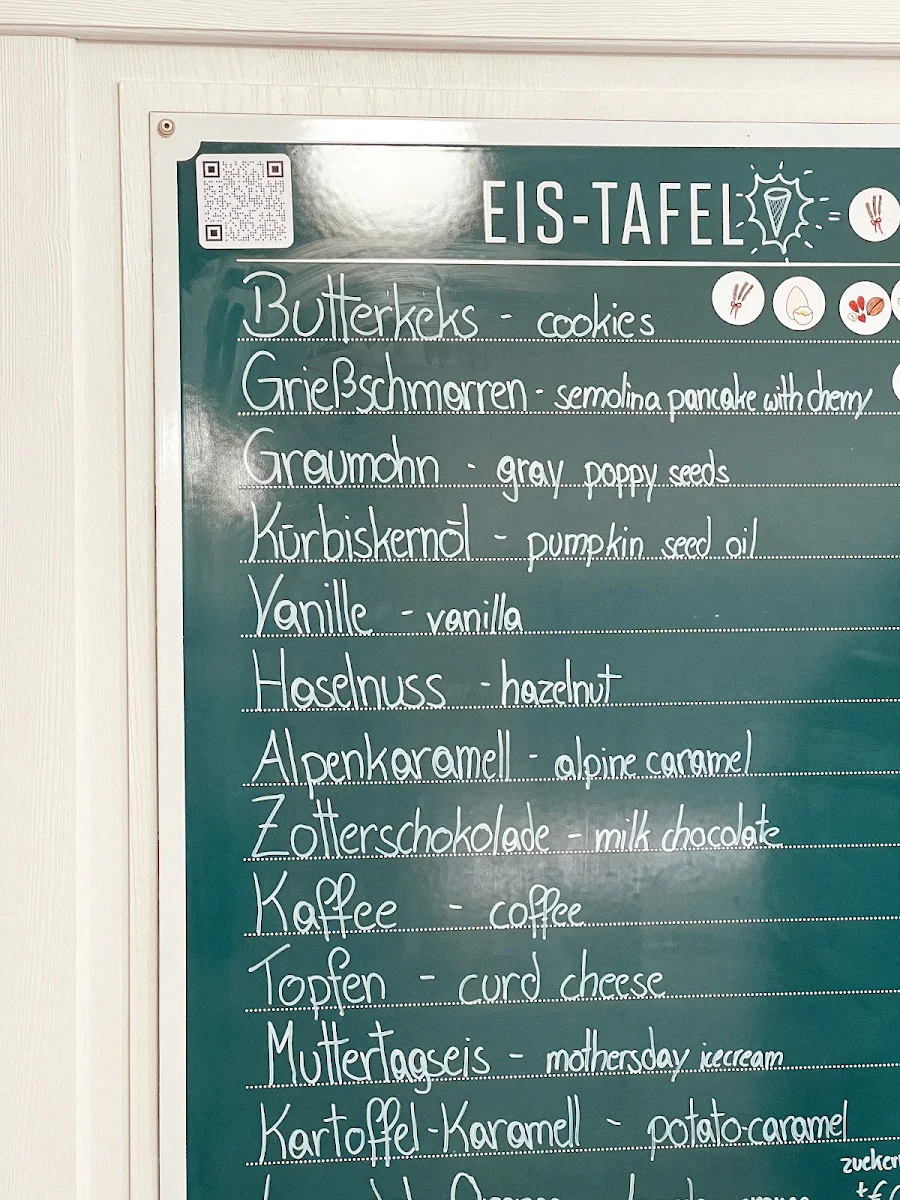 EIS-TAFEL =
Butterkeks - cookies
Grießschmarren - semolina pancake with cherry
Graumohn - gray poppy seeds
Kürbiskernöl - pumpkin seed oil
Vanille - vanilla
Haselnuss - hazelnut
Alpenkaramell - alpine caramel
Zotterschokolade - milk chocolate
Kaffee - coffee
Topfen - curd cheese
Muttertagseis - mothersday icecream
Kartoffel-Karamell - potato-caramel